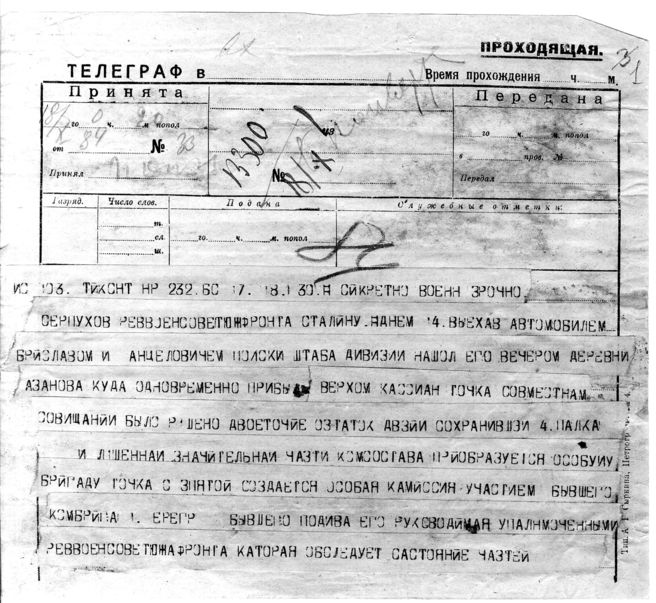 ПРОХОДЯЩАЯ.
ТЕЛЕГРАФ в
Время прохождения ч. м.
Принята
го ч. м попол
от 34 № 33
Принял
13300
из
№
Передана
го ч. м попол
в пров. №
Передал
Разряд. Число слов. Подана Служебные отметки:
т.
сл. го. ч. м. попол
ш.
НР 232.БС 17. 18.1 30.Я СЙКРЕТНО ВОЕНН ЗРОЧНО
СЕРПУХОВ РЕВВОЕНСОВЕТЮЖФРОНТА СТАЛИНУ.ЯДНЕМ 14.ВЫЕХАВ АВТОМОБИЛЕМ
БРИЗЛАВОМ И АНЦЕЛОВИЧЕМ ПОИСКИ ШТАБА ДИВИЗИИ НАШОЛ ЕГО ВЕЧЕРОМ ДЕРЕВНИ
АЗАНОВА КУДА ОДНОВРЕМЕННО ВЕРХОМ КАССИАН ТОЧКА СОВМЕСТНАМ
СОВИЩАНИИ БЫЛО РІШЕНО ДВОЕТОЧИЕ ОЗТАТОК ДВЗІИ СОХРАНИВШЗИ 4.ПАЛКА
И ЛІШЕННАІ ЗНАЧІТЕЛЬНАІ ЧАЗТИ КОМСОСТАВА ПРИОБРАЗУЕТСЯ ОСОБУІУ
БРИГАДУ ТОЧКА С ЗПЯТОЙ СОЗДАЕТСЯ ІОЗОБАЯ КАМИССИЯ УЧАСТИЕМ БЫВШЕГО
БЫВШЕНО ПОДИВА ЕГО РУКОВОДІМАЯ УПАЛНМОЧЕННЫМИ
РЕВВОЕНСОВЕТЮЖАФРОНГА КАТОРАЯ ОБСЛЕДУЕТ САСТОЯНИЕ ЧАЗТЕЙ